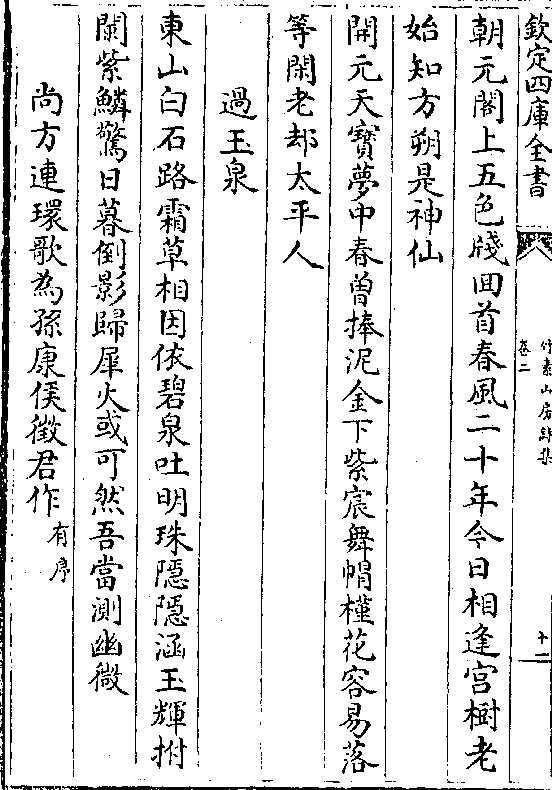 欽定四庫全書
竹素山房詩集
卷二
十二
朝元閣上五色牋囬首春風二十年今日相逢宫樹老
始知方朔是神仙
開元天寳夢中春曽捧泥金下紫宸舞㡌槿花容易落
等閑老却太平人
過玉泉
東山白石路霜草相因依碧泉吐明珠隠隠涵玉輝拊
闌紫鱗驚日暮倒影歸犀火或可然吾當測幽微
尚方連環歌為孫康侯徵君作有序